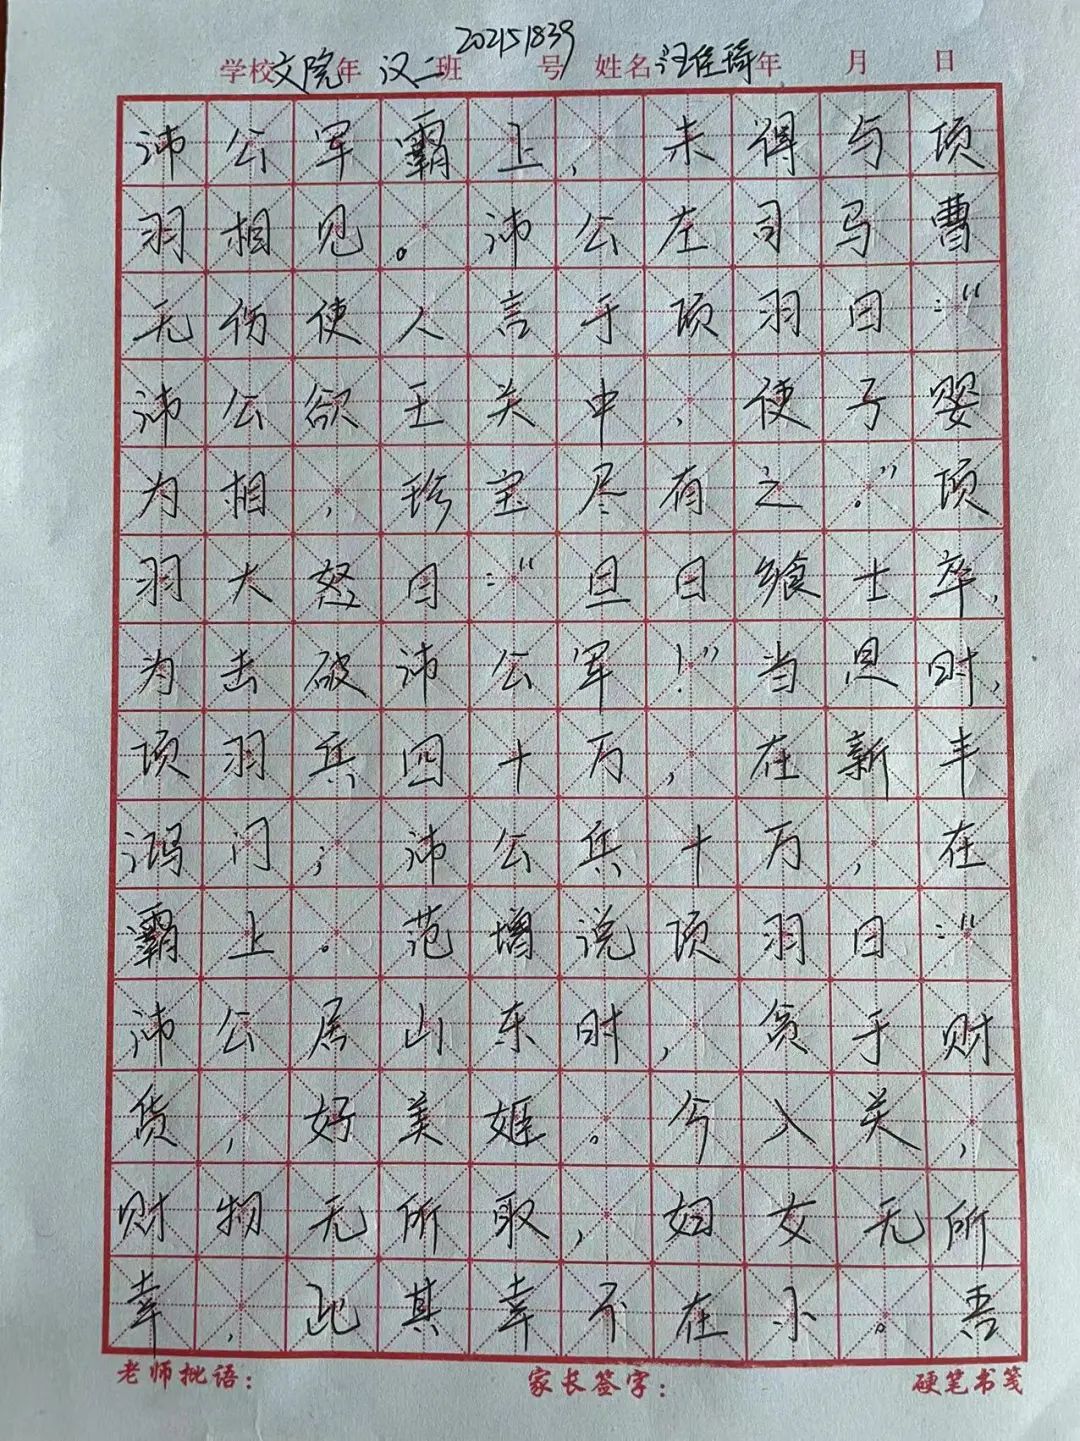 学校文院年 汉二班 202151839号 姓名汪佳琦年 月 日
沛公军霸上，未得与项
羽相见。沛公左司马曹
无伤使人言于项羽曰：“
沛公欲王关中，使子婴
为相，珍宝尽有之。”项
羽大怒曰：“旦日飨士卒，
为击破沛公军！”当是时，
项羽兵四十万，在新丰
鸿门；沛公兵十万，在
霸上。范增说项羽曰：“
沛公居山东时，贪于财
货，好美姬。今入关，
财物无所取，妇女无所
幸，此其幸不在小。吾
老师批语： 家长签字： 硬笔书笺